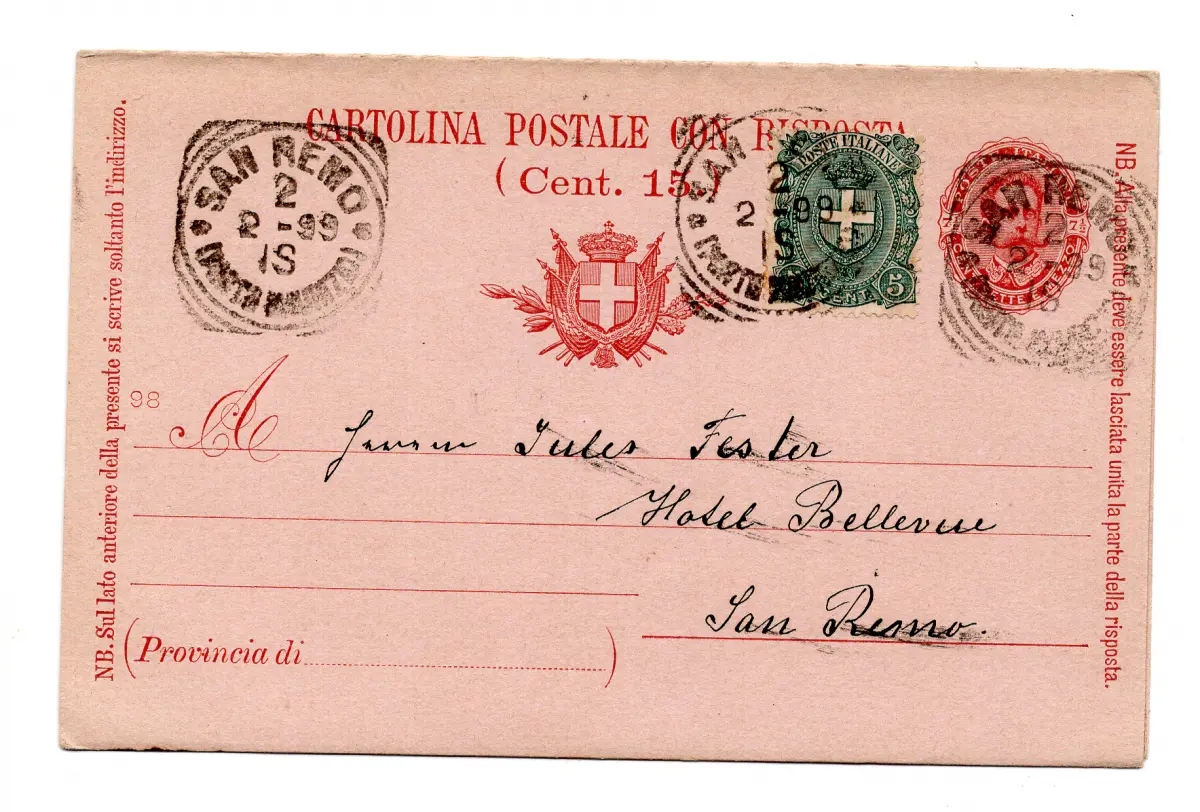 CARTOLINA POSTALE CON RISPOSTA
(Cent. 15.)
SAN REMO
2
2 - 99
1S
(PORTO MAURIZIO)
SAN
2
2 - 99
1S
(PORTO
POSTE ITALIANE
5
5
CENT
7½
SAN REMO
2
2 99
NB. Sul lato anteriore della presente si scrive soltanto l'indirizzo.
98
A
Herrn Jules Fester
Hotel Bellevue
San Remo.
(Provincia di)
NB. Alla presente deve essere lasciata unita la parte della risposta.